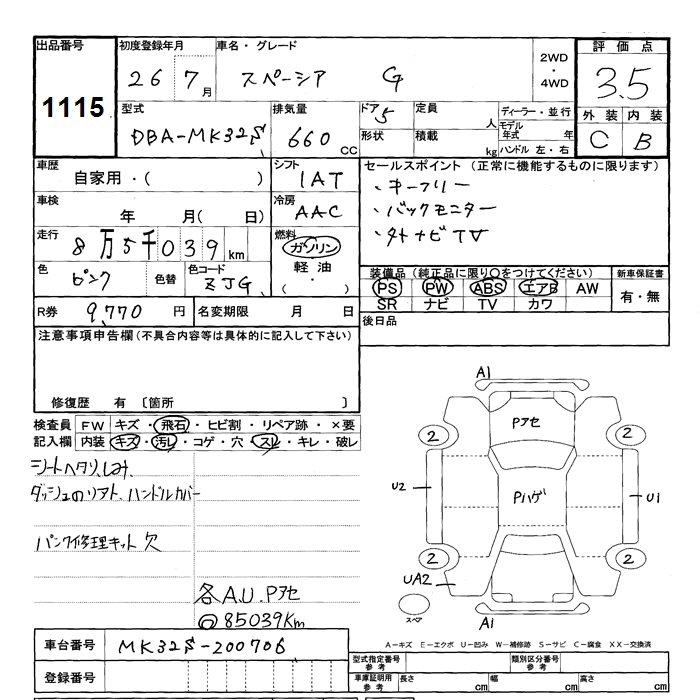 出品番号
1115
初度登録年月
26 7月
車名・グレード
スペーシア G
2WD
・
4WD
評価点
3.5
外装 内装
C B
型式
DBA-MK32S
排気量
660 CC
ドア 5
形状
定員
人
積載
kg
ディーラー・並行
モデル
年式 年
ハンドル 左・右
車歴
自家用・( )
シフト
IAT
セールスポイント (正常に機能するものに限ります)
・キーフリー
・バックモニター
・外ナビTV
車検
年 月( 日)
冷房
AAC
走行
8万5千039km
燃料
ガソリン
・
軽油
( ・ )
色
ピンク
色替
色コード
ZJG
装備品 (純正品に限り〇をつけてください)
PS PW ABS エアB AW
SR ナビ TV カワ
新車保証書
有・無
R券 9,770 円
名変期限 月 日
後日品
注意事項申告欄(不具合内容等は具体的に記入して下さい)
修復歴 有 〔箇所 〕
検査員
記入欄
FW キズ・飛石・ヒビ割・リペア跡・×要
内装 キズ・汚レ・コゲ・穴・スレ・キレ・破レ
シートヘタリ、しみ、
ダッシュのリアト、ハンドルカバー
パンク修理キット欠
各A.U.Pアセ
◎85039Km
A1
Pアセ
2 2
U2
Pハゲ
U1
2 2
UA2
スペア
A1
車台番号 MK32S-200706
登録番号
A－キズ E－エクボ U－凹み W－補修跡 S－サビ C－腐食 XX－交換済
型式指定番号
参考
類別区分番号
参考
車庫証明用
参考
長さ cm 幅 cm 高さ cm